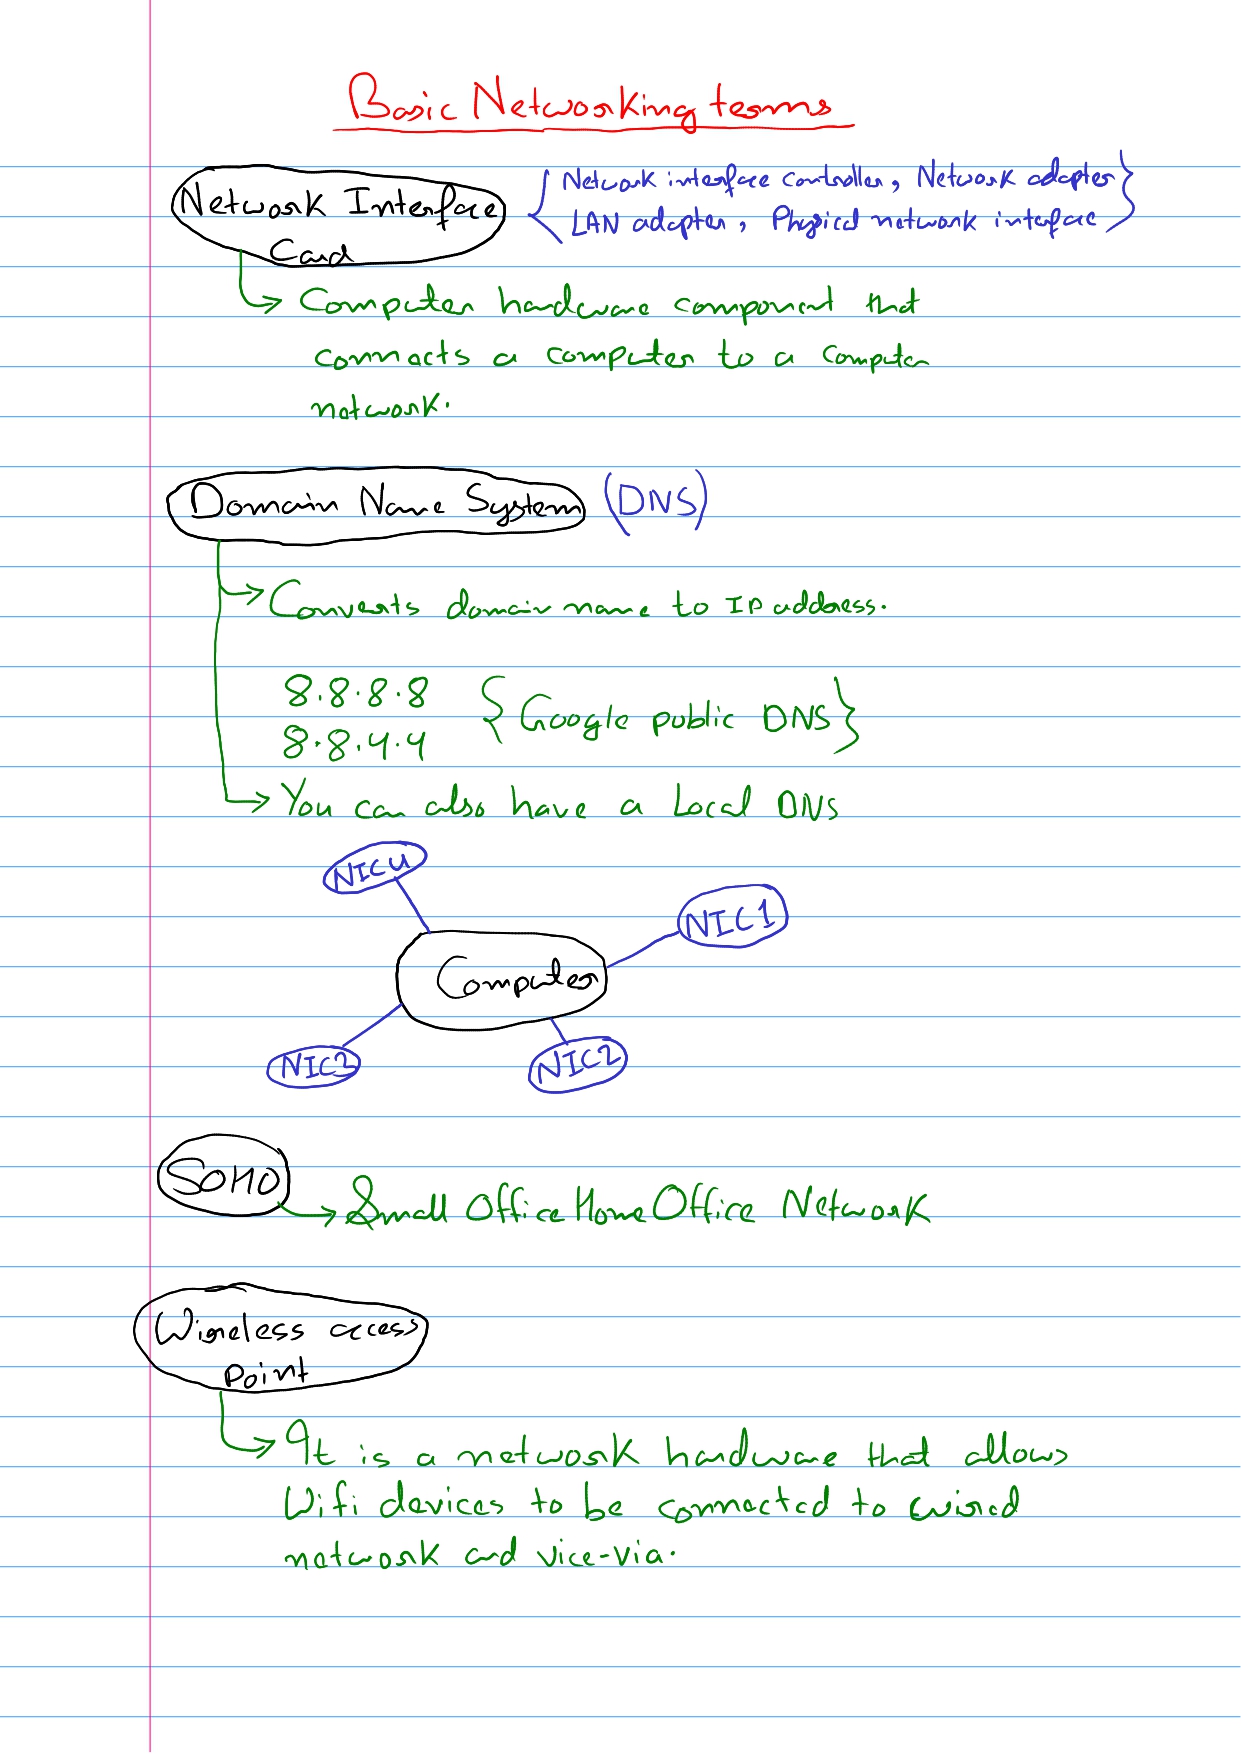 Basic Networking terms
Network Interface
Card
{ Network interface controller, Network adapter
LAN adapter, Physical network interface }
Computer hardware component that
connects a computer to a computer
network.
Domain Name System (DNS)
Converts domain name to IP address.
8.8.8.8
8.8.4.4
{ Google public DNS }
You can also have a Local DNS
NIC4
NIC1
Computer
NIC3
NIC2
SOHO
Small Office Home Office Network
Wireless access
Point
It is a network hardware that allows
Wifi devices to be connected to wired
network and vice-via.